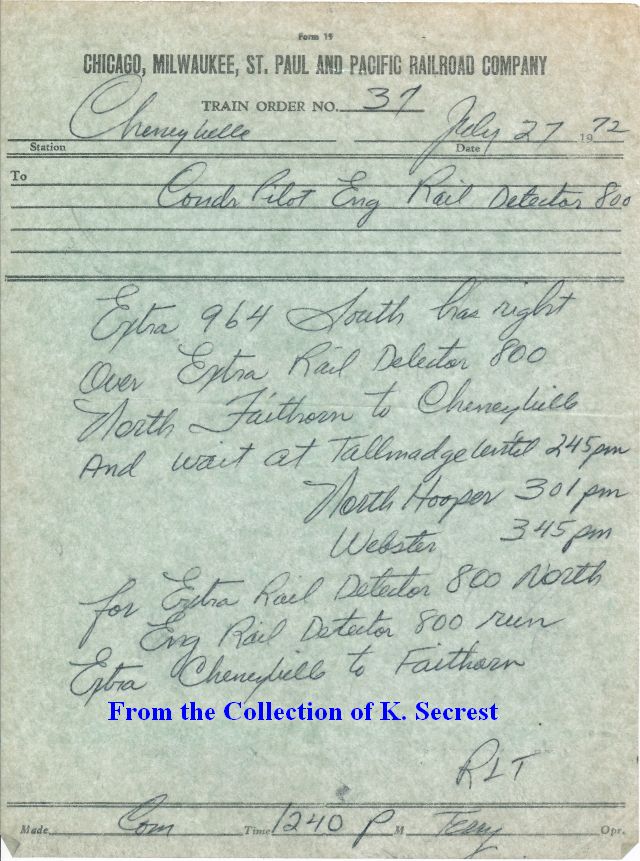 Form 19
CHICAGO, MILWAUKEE, ST. PAUL AND PACIFIC RAILROAD COMPANY
TRAIN ORDER NO. 37
Cheneyville July 27 1972
Station Date
To Condr Pilot Eng Rail Detector 800
Extra 964 South has right
Over Extra Rail Detector 800
North Faithorn to Cheneyville
And wait at Tallmadge until 245 pm
North Hooper 301 pm
Webster 345 pm
for Extra Rail Detector 800 North
Eng Rail Detector 800 run
Extra Cheneyville to Faithorn
From the Collection of K. Secrest
RLT
Made Com Time 1240 P M Terry Opr.